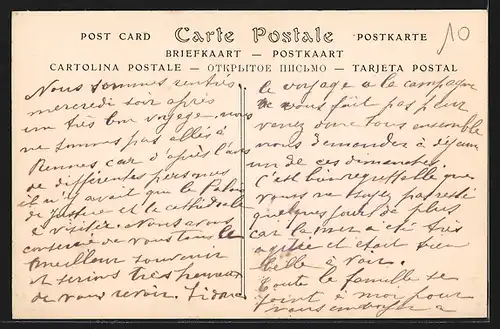 10
POST CARD
Carte Postale
POSTKARTE
BRIEFKAART — POSTKAART
CARTOLINA POSTALE — ОТКРЫТОЕ ПИСЬМО — TARJETA POSTAL
Nous sommes rentrés
mercredi soir après
un très bon voyage nous
ne sommes pas allés à
Rennes car d'après l'avis
de différentes personnes
il n'y avait que le Palais
de justice et la cathédrale
à visiter. Nous avons
conservé de vous tous le
meilleur souvenir
et serions très heureux
de vous revoir.
le voyage a la campagne
ne vous fait pas peur
venez donc tous ensemble
nous demander à déjeuner
un de ces dimanches
C'est bien regrettable que
vous ne soyez pas resté
quelques jours de plus
car la mer a été très
agitée et était bien
belle à voir.
Toute la famille se
joint à moi pour
vous envoyer